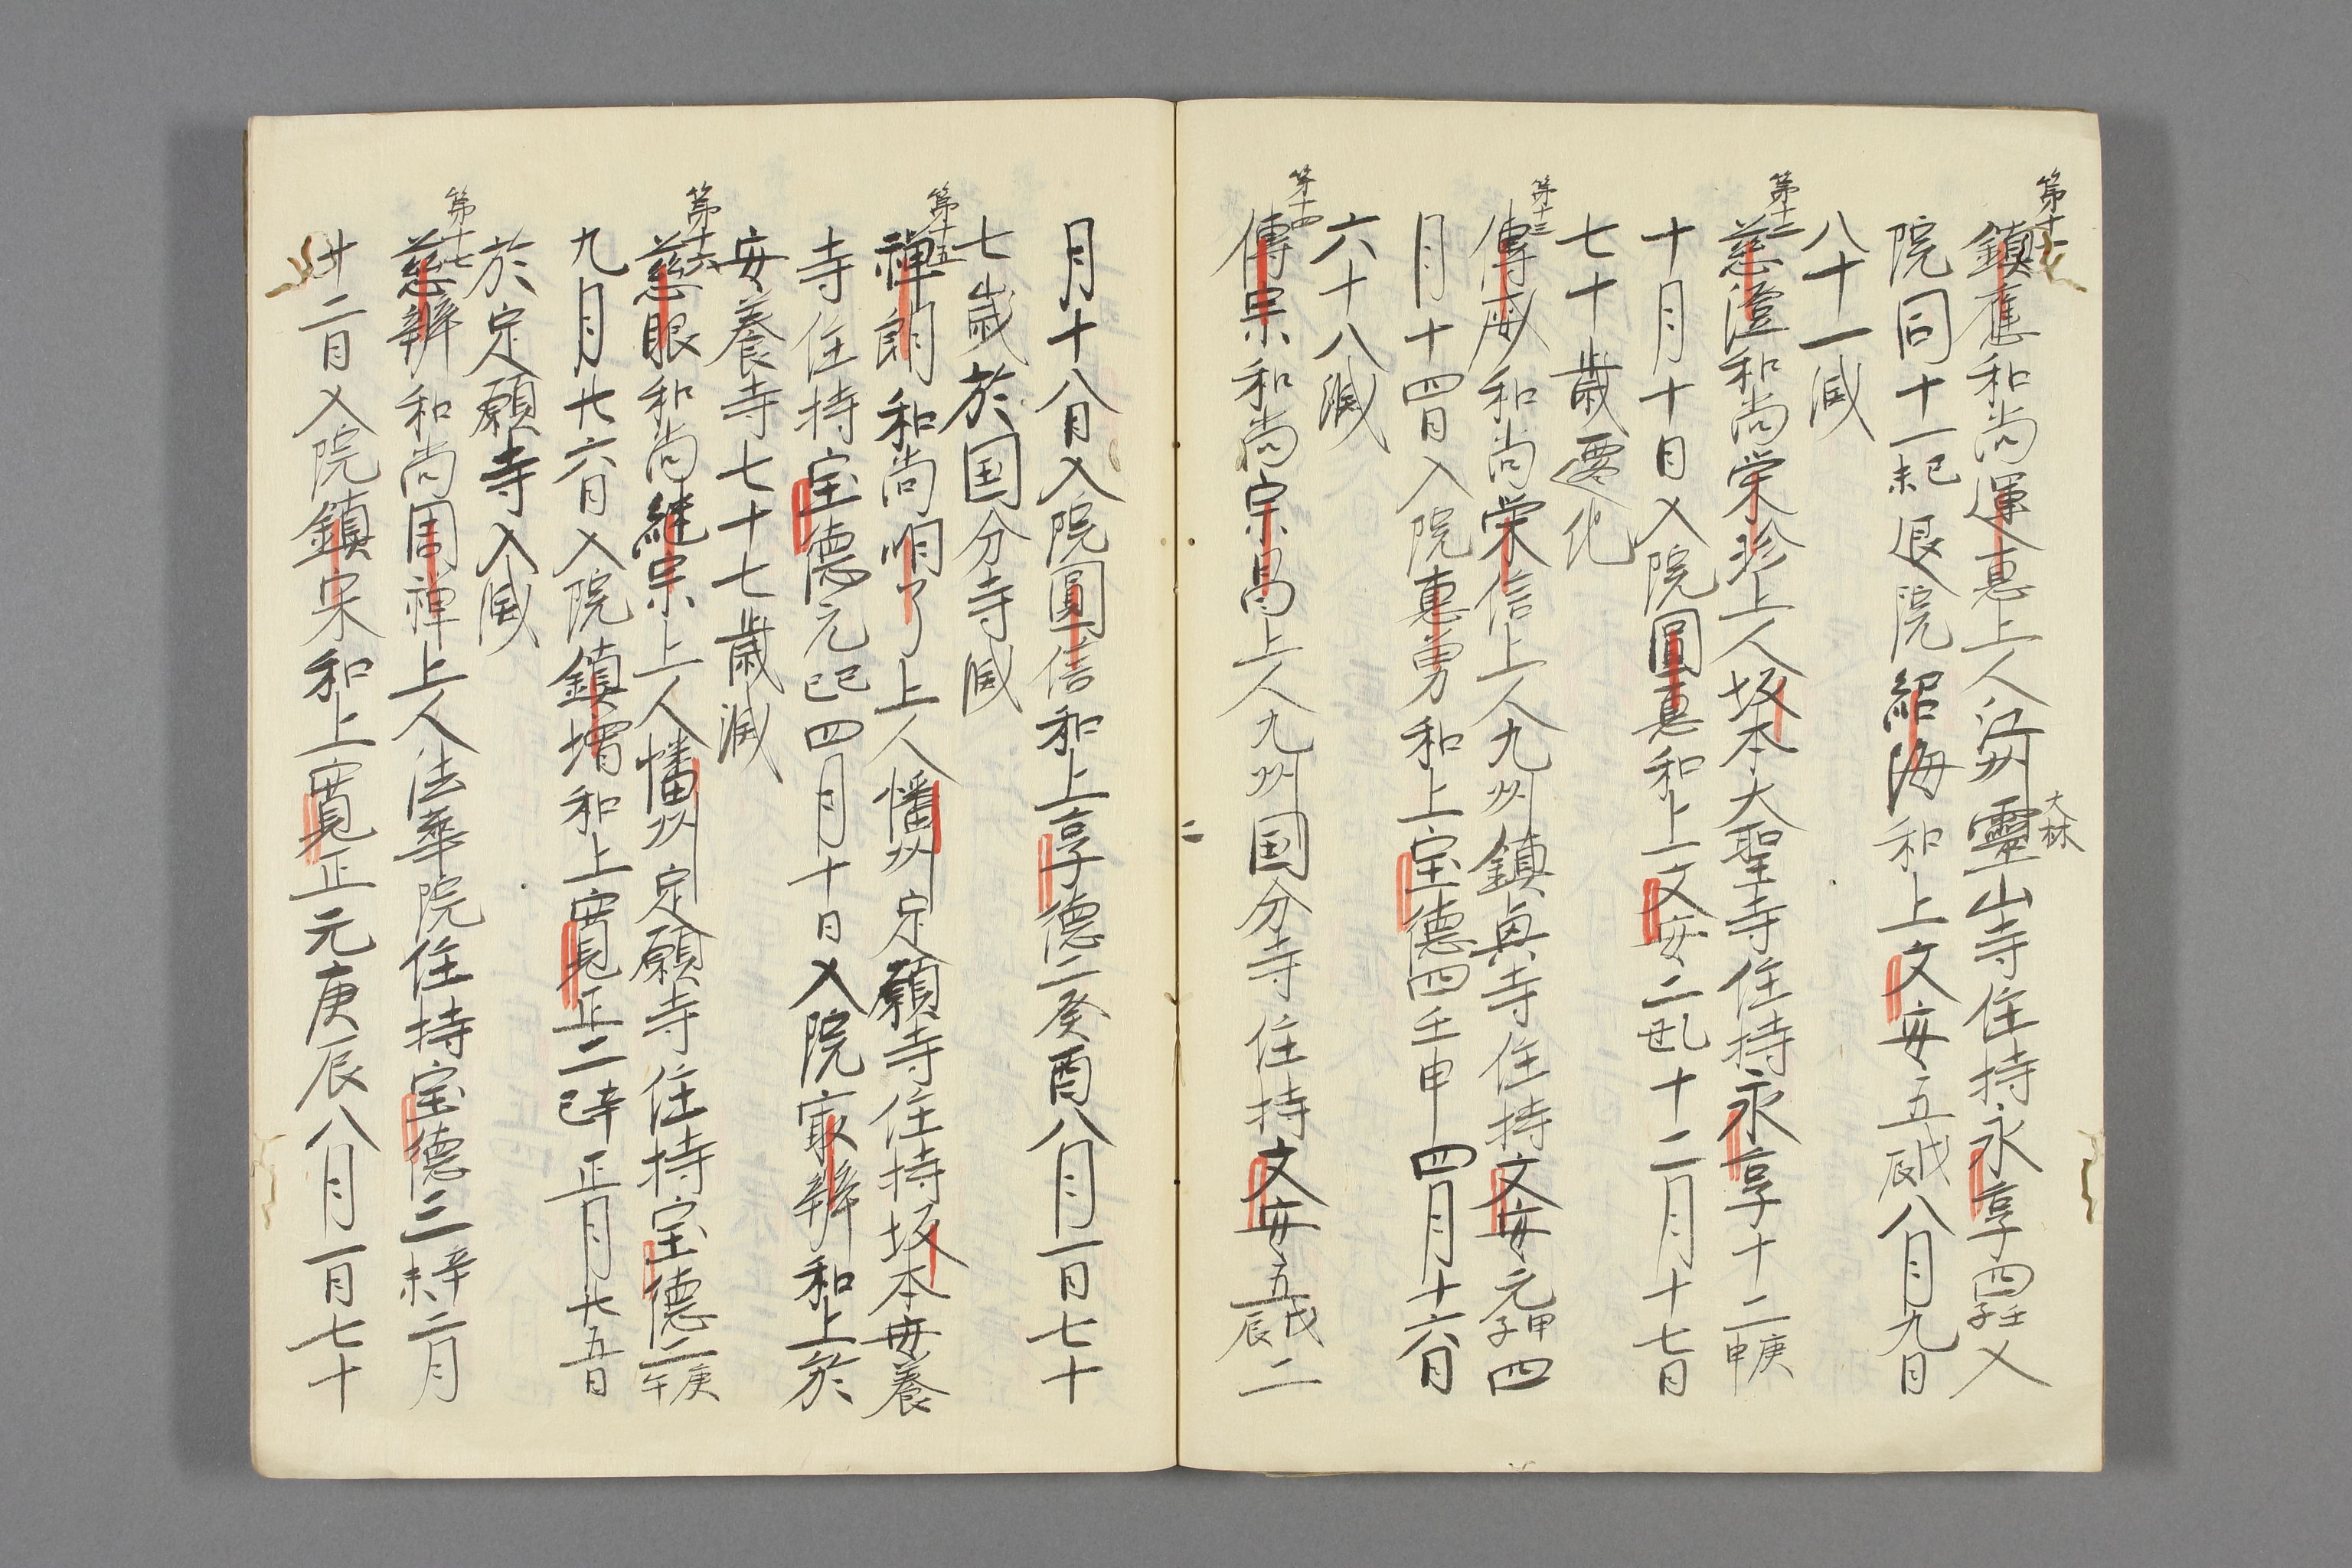 第十一
鎮應和尚運恵上人江州霊山寺住持永享四壬子入
大林
院同十一己未退院紹海和上文安五戊辰八月九日
八十一滅
第十二
慈澄和尚栄珍上人坂本大聖寺住持永享十二庚申
十月十日入院圓恵和上文安二乙丑十二月十七日
七十歳遷化
第十三
傳威和尚栄信上人九州鎮興寺住持文安元甲子四
月十四日入院恵勇和上宝德四壬申四月十六日
六十八滅
第十四
傳宗和尚宗昌上人九州国分寺住持文安五戊辰二
月十八日入院圓信和上享德二癸酉八月一日七十
七歳於国分寺滅
第十五
禅朗和尚明了上人幡州定願寺住持坂本安養
寺住持宝德元己巳四月十日入院㝡辨和上於
安養寺七十七歳滅
第十六
慈眼和尚継宗上人幡州定願寺住持宝德二庚午
九月廿六日入院鎮増和上寛正二辛巳正月廿五日
於定願寺入滅
第十七
慈辨和尚周禅上人法華院住持宝德三辛未二月
廿二日入院鎮宗和上寛正元庚辰八月一日七十